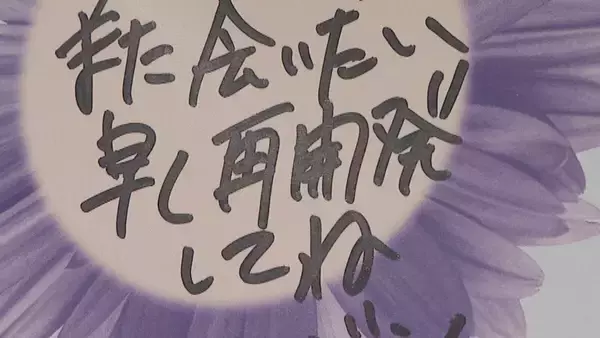 また会いたい
早く再開発
してね